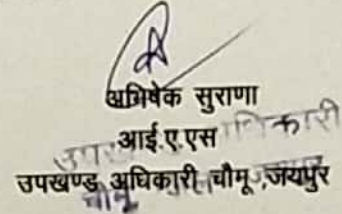 अभिषेक सुराणा
आई.ए.एस
उपखण्ड अधिकारी चौमू ,जयपुर